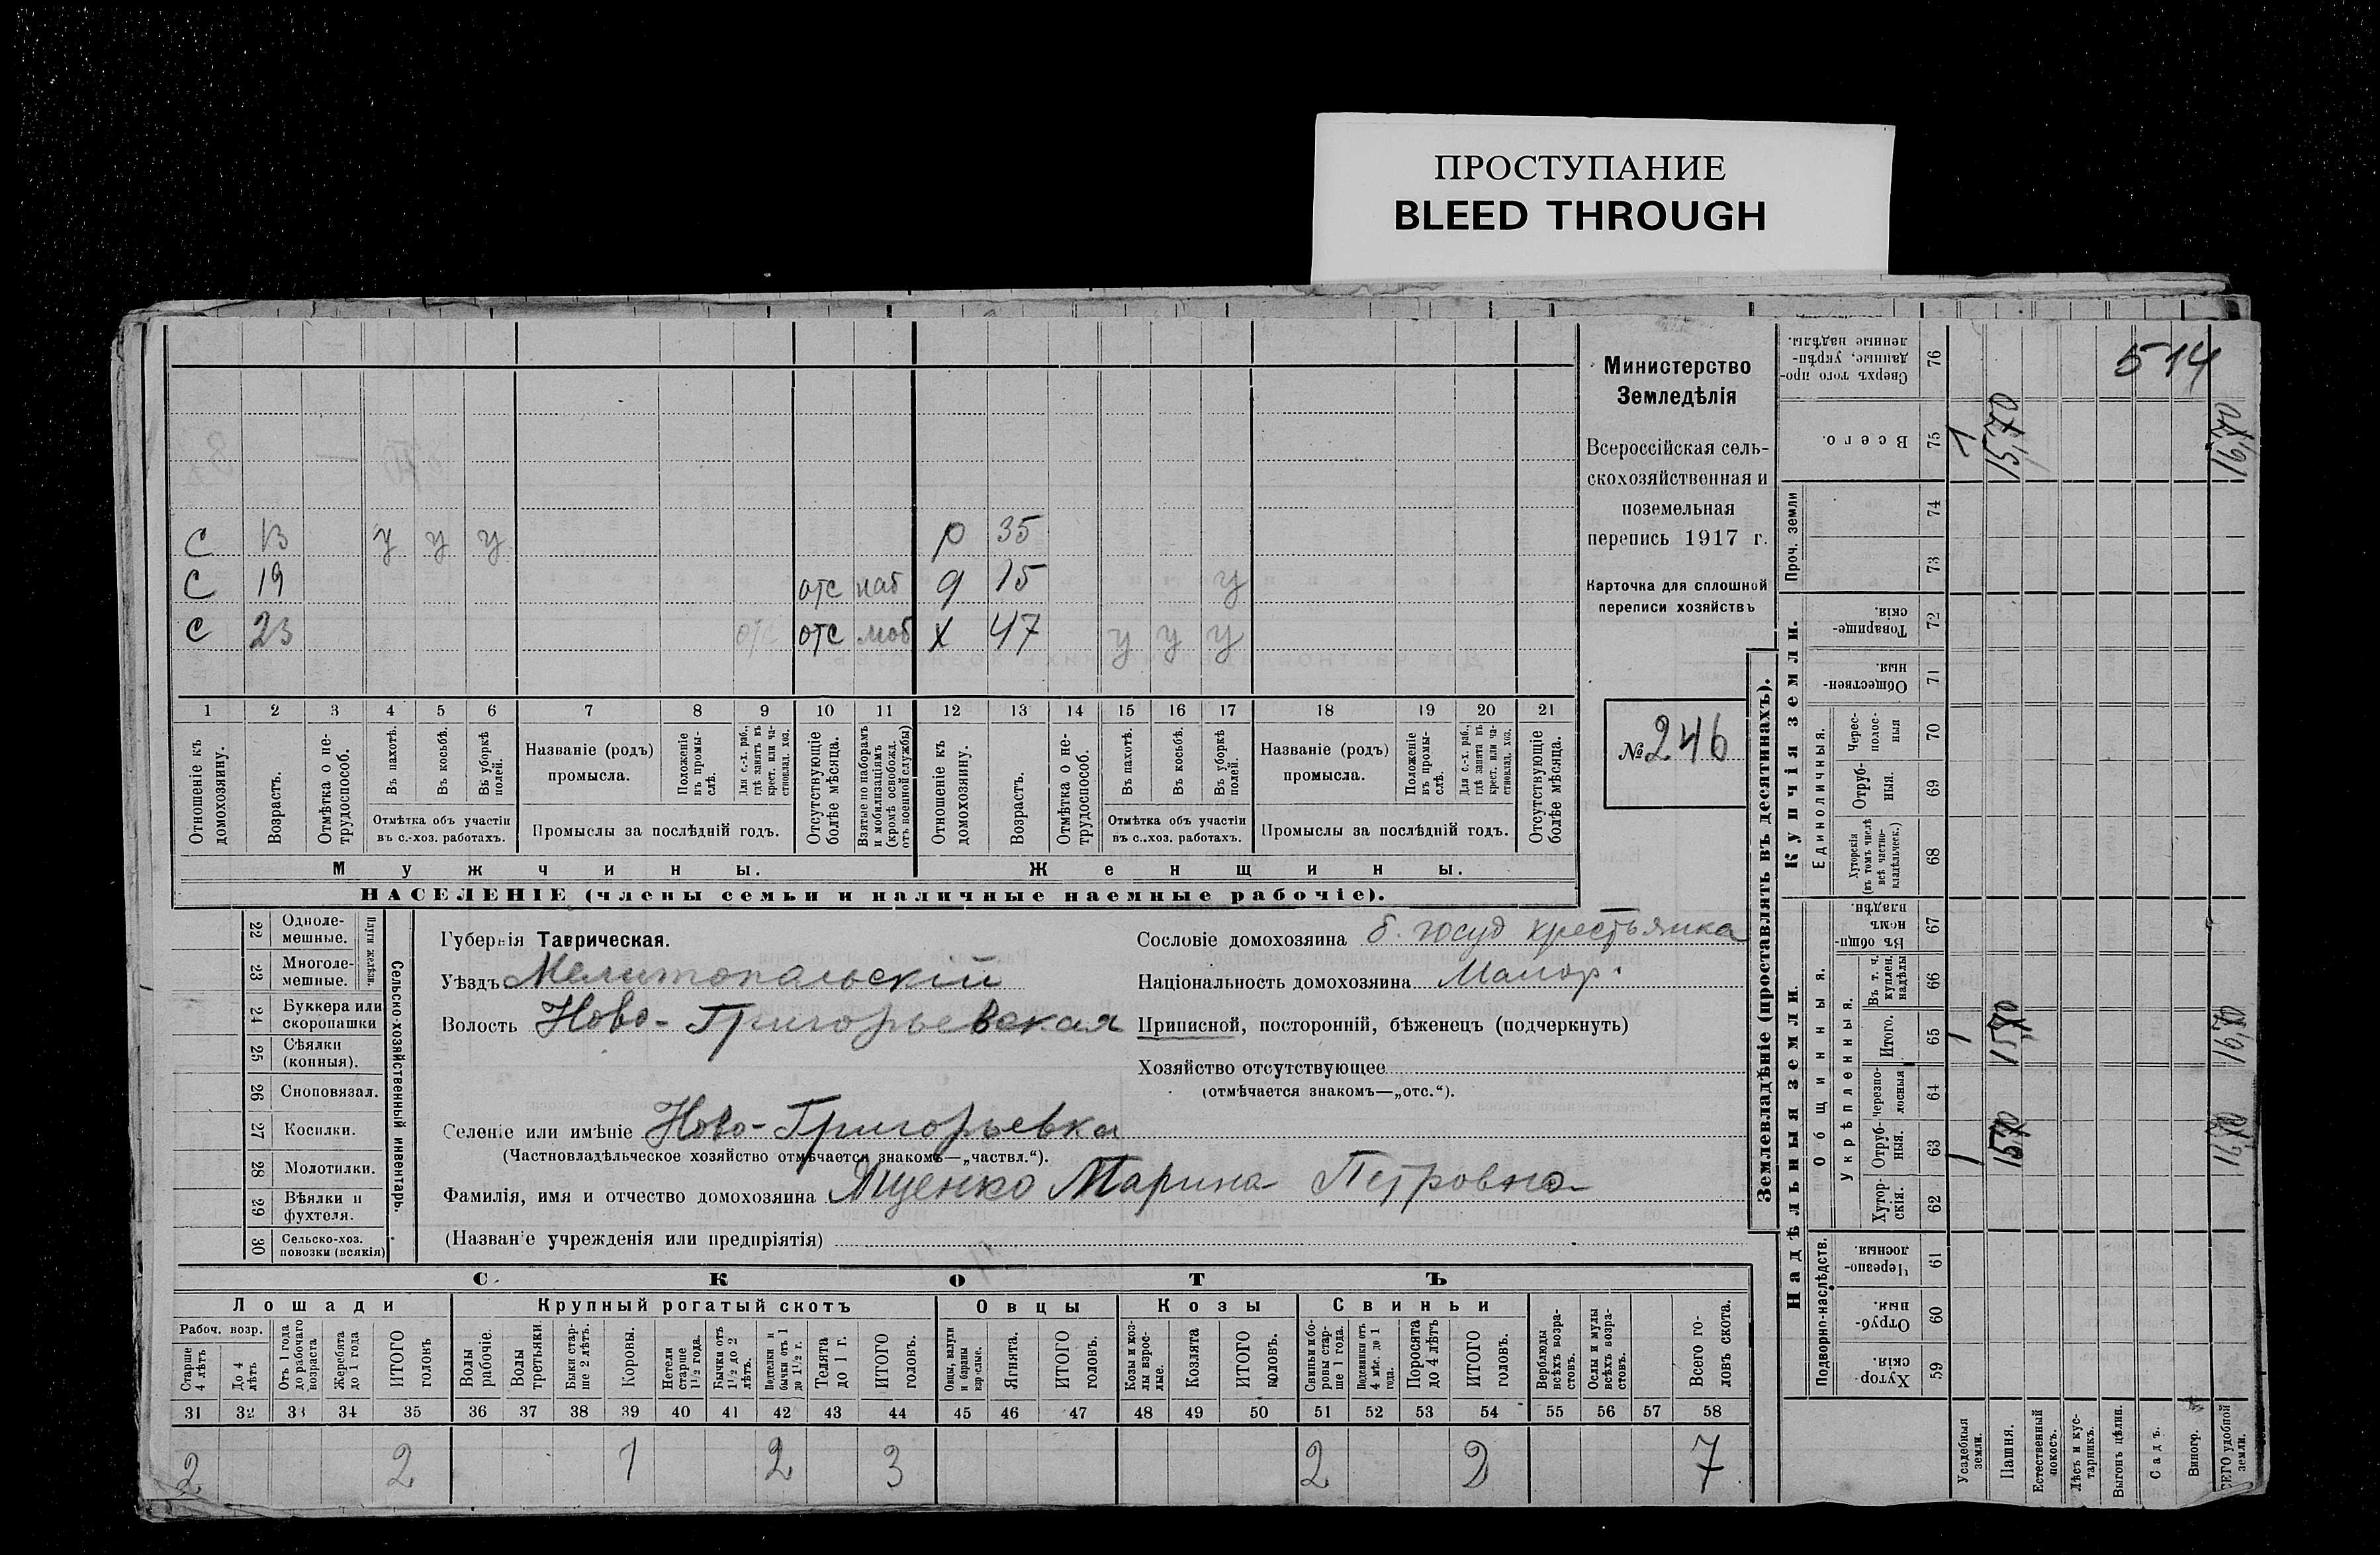 ПРОСТУПАНИЕ
BLEED THROUGH
514
С 13 у у у р 35
С 19 отс наб д 15 у
С 23 отс отс моб х 47 у у у
1 2 3 4 5 6 7 8 9 10 11 12 13 14 15 16 17 18 19 20 21
Отношеніе къ домохозяину.
Возрастъ.
Отмѣтка о не-трудоспособ.
Въ пахотѣ.
Въ косьбѣ.
Въ уборкѣ полей.
Отмѣтка объ участіи
въ с.-хоз. работахъ.
Названіе (родъ)
промысла.
Положеніе въ промы-слѣ.
Для с.-х. раб., гдѣ занятъ въ крест. или ча-стновлад. хоз.
Промыслы за послѣдній годъ.
Отсутствующіе болѣе мѣсяца.
Взятые по наборамъ и мобилизаціямъ (кромѣ освобожд. отъ военной службы)
Отношеніе къ домохозяину.
Возрастъ.
Отмѣтка о не-трудоспособ.
Въ пахотѣ.
Въ косьбѣ.
Въ уборкѣ полей.
Отмѣтка объ участіи
въ с.-хоз. работахъ.
Названіе (родъ)
промысла.
Положеніе въ промы-слѣ.
Для с.-х. раб., гдѣ занята въ крест. или ча-стновлад. хоз.
Промыслы за послѣдній годъ.
Отсутствующіе болѣе мѣсяца.
Мужчины. Женщины.
НАСЕЛЕНІЕ (члены семьи и наличные наемные рабочіе).
Министерство
Земледѣлія
Всероссійская сель-
скохозяйственная и
поземельная
перепись 1917 г.
Карточка для сплошной
переписи хозяйствъ
№ 246
22 Одноле-мешные.
23 Многоле-мешные.
Плуги желѣзн.
24 Буккера или скоропашки
25 Сѣялки (конныя).
26 Сноповязал.
27 Косилки.
28 Молотилки.
29 Вѣялки и фухтеля.
30 Сельско-хоз. повозки (всякія)
Сельско-хозяйственный инвентарь.
Губернія Таврическая.
Уѣздъ Мелитопольскій
Волость Ново-Григорьевская
Селеніе или имѣніе Ново-Григорьевка
(Частновладѣльческое хозяйство отмѣчается знакомъ—„частвл.“).
Фамилія, имя и отчество домохозяина Ященко Марина Петровна
(Названіе учрежденія или предпріятія)
Сословіе домохозяина б. госуд крестьянка
Національность домохозяина Малор.
Приписной, посторонній, бѣженецъ (подчеркнуть)
Хозяйство отсутствующее
(отмѣчается знакомъ—„отс.“).
СКОТЪ
Лошади Крупный рогатый скотъ Овцы Козы Свиньи
Рабоч. возр.
Старше 4 лѣтъ
До 4 лѣтъ
Отъ 1 года до рабочаго возраста
Жеребята до 1 года
ИТОГО головъ
Волы рабочіе.
Волы третьяки.
Быки стар-ше 2 лѣтъ.
Коровы.
Нетели старше 1½ года.
Бычки отъ 1½ до 2 лѣтъ.
Подтелки и бычки отъ 1 до 1½ г.
Телята до 1 г.
ИТОГО головъ.
Овцы, валухи и бараны взрослые.
Ягнята.
ИТОГО головъ.
Козы и коз-лы взрос-лые.
Козлята
ИТОГО головъ.
Свиньи и бо-ровы стар-ше 1 года.
Подсвинки отъ 4 мѣс. до 1 года.
Поросята до 4 лѣтъ
ИТОГО головъ.
Верблюды всѣхъ возра-стовъ.
Ослы и мулы всѣхъ возра-стовъ.
Всего го-ловъ скота.
31 32 33 34 35 36 37 38 39 40 41 42 43 44 45 46 47 48 49 50 51 52 53 54 55 56 57 58
2 2 1 2 3 2 2 7
Землевладѣніе (проставлять въ десятинахъ).
Надѣльныя земли.
Купчія земли.
Проч. земли
Подворно-наслѣдств.
Общинныя.
Укрѣпленныя.
Единоличныя.
Хутор-скія. 59
Отруб-ныя. 60
Черезпо-лосныя. 61
Хутор-скія. 62
Отруб-ныя. 63
Черезпо-лосныя 64
Итого. 65
Въ т. ч. куплен. надѣлы 66
Въ общин-номъ владѣн. 67
Хуторскія (въ томъ числѣ всѣ частно-владѣльческ.) 68
Отруб-ныя. 69
Черес-полос-ныя 70
Обществен-ныя. 71
Товарище-скія. 72
73
74
Всего. 75
Сверхъ того про-данные, укрѣп-ленные надѣлы. 76
Усадебныя земли. 1 1 1
Пашня. 1570 15,70 15,70
Естественный покосъ.
Лѣсъ и кус-тарникъ.
Выгонъ цѣлин.
Садъ.
Виногр.
ВСЕГО удобной земли. 1670 16,70 16,70